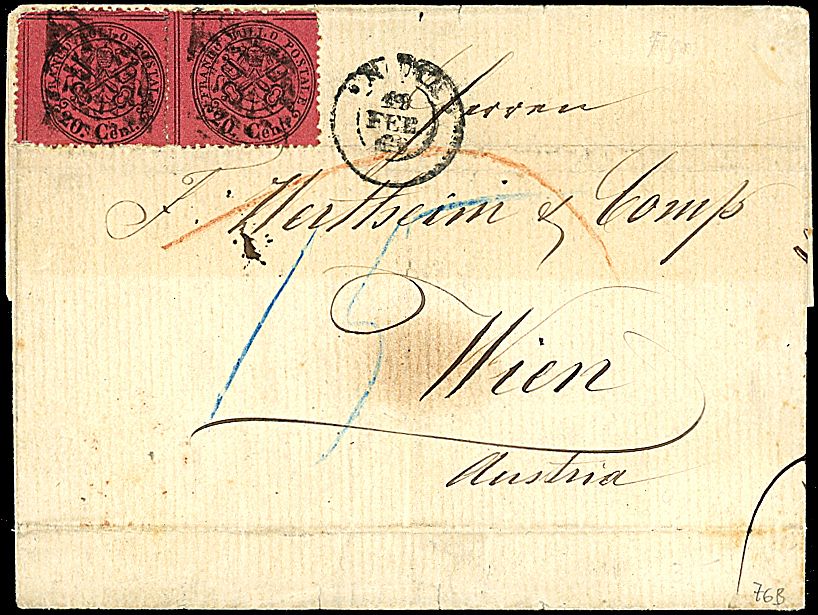 FRANCO BOLLO POSTALE
20. Cent.
FRANCO BOLLO POSTALE
20. Cent.
ROMA
19
FEB
Herren
F. Wertheim & Comp
15
Wien
Austria
76B